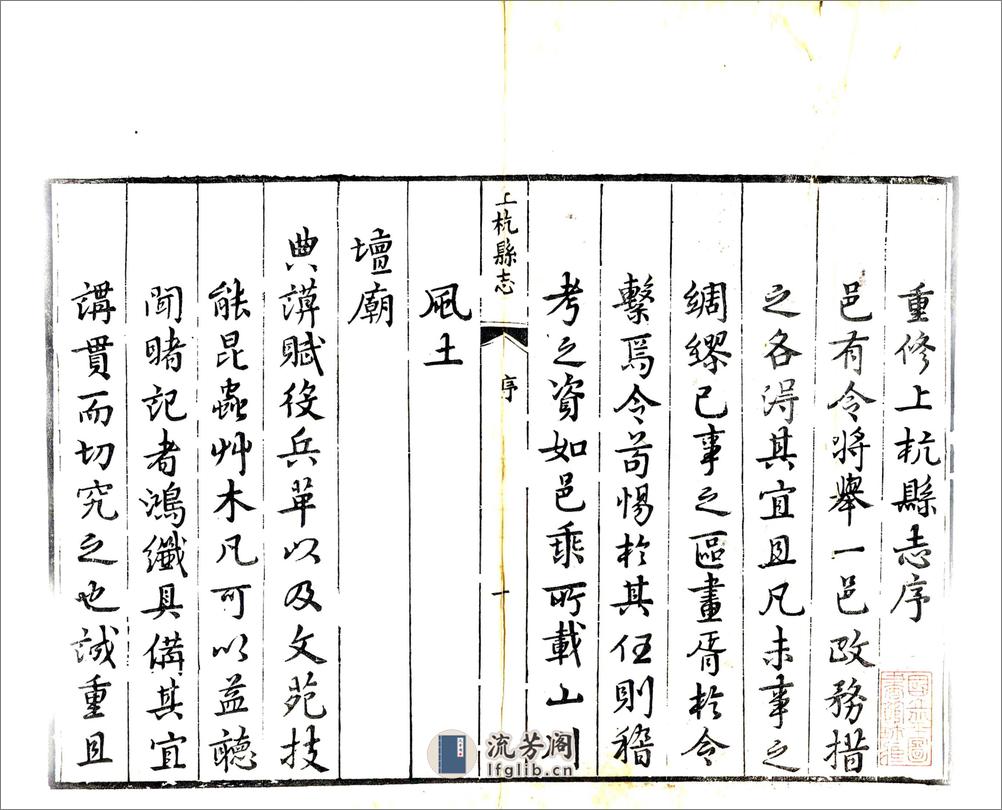 重修上杭縣志序
邑有令將舉一邑政務措
之各得其宜且凡未事之
綢繆已事之區畫胥於令
繫焉令苟惕於其任則稽
考之資如邑乘所載山川
風土
上杭縣志
序
壇廟
典謨賦役兵革以及文苑技
能昆蟲艸木凡可以益聽
聞睹記者鴻纖具備其宜
講貫而切究之也誠重且
流芳阁
lfglib.cn